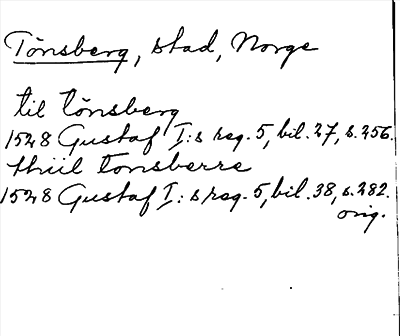 Tönsberg, stad, Norge
til tönsberg
1528 Gustaf I:s reg. 5, bil. 27, s. 256.
thiil tonsberre
1528 Gustaf I:s reg. 5, bil. 38, s. 282.
orig.